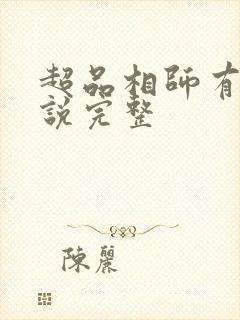 超品相師有
說完整
陳麗